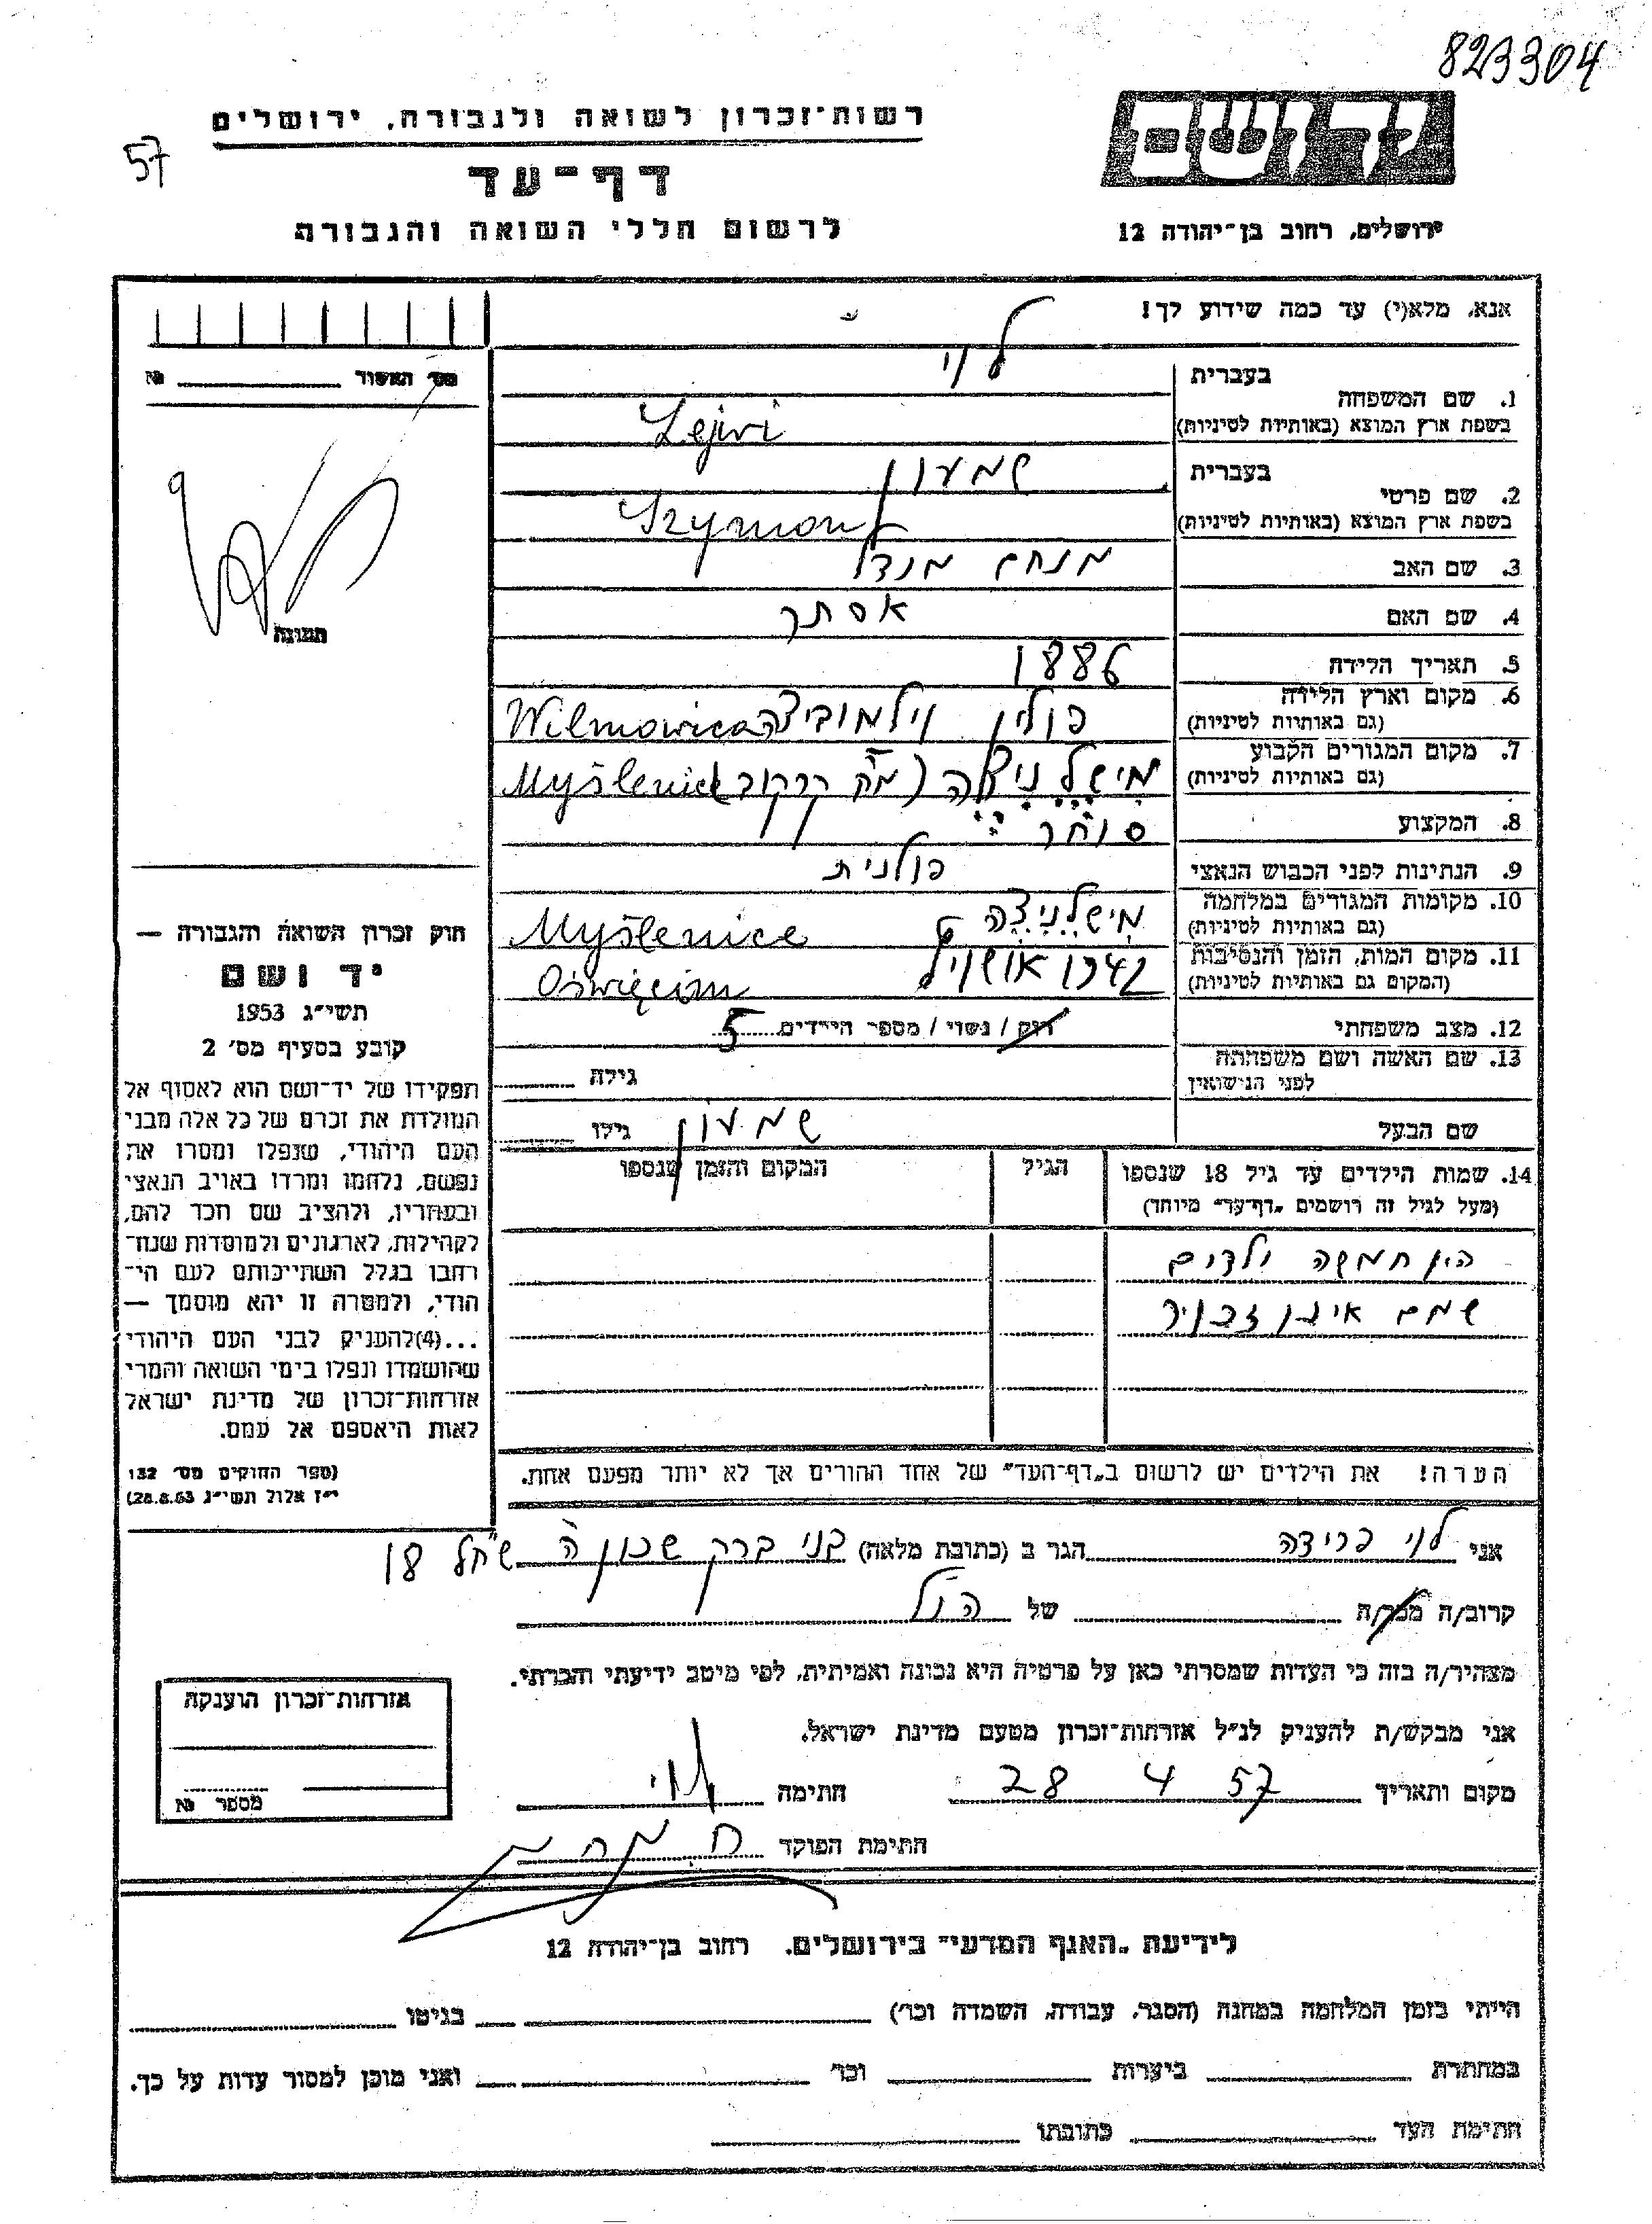 823304
57
רשות־זכרון לשואה ולגבורה, ירושלים
דף־עד
לרשום חללי השואה והגבורה
יד ושם
ירושלים, רחוב בן־יהודה 12
אנא, מלא(י) עד כמה שידוע לך!
מס' האשור №
תמונה
1. שם המשפחה בעברית לוי
בשפת ארץ המוצא (באותיות לטיניות) Lejwi
2. שם פרטי בעברית שמעון
בשפת ארץ המוצא (באותיות לטיניות) Szymon
3. שם האב מנחם מנדל
4. שם האם אסתר
5. תאריך הלידה 1886
6. מקום וארץ הלידה (גם באותיות לטיניות) פולין וילמוביצה Wilmowica
7. מקום המגורים הקבוע (גם באותיות לטיניות) מישלניצה (מח קרקוב Myślenice
8. המקצוע סוחר
9. הנתינות לפני הכבוש הנאצי פולנית
10. מקומות המגורים במלחמה (גם באותיות לטיניות) מישלניצה Myślenice
11. מקום המות, הזמן והנסיבות (המקום גם באותיות לטיניות) 1942 Oświęcim
12. מצב משפחתי רוק / נשוי / מספר הילדים 5
13. שם האשה ושם משפחתה לפני הנישואין גילה
שם הבעל שמעון גילו
14. שמות הילדים עד גיל 18 שנספו הגיל המקום והזמן שנספו
(מעל לגיל זה רושמים „דף־עד" מיוחד)
היו חמשה ילדים
שמם אינו זכור
הערה! את הילדים יש לרשום ב„דף־העד" של אחד ההורים אך לא יותר מפעם אחת.
חוק זכרון השואה והגבורה —
יד ושם
תשי"ג 1953
קובע בסעיף מס' 2
תפקידו של יד־ושם הוא לאסוף אל
המולדת את זכרם של כל אלה מבני
העם היהודי, שנפלו ומסרו את
נפשם, נלחמו ומרדו באויב הנאצי
ובעוזריו, ולהציב שם וזכר להם,
לקהילות, לארגונים ולמוסדות שנח־
רבו בגלל השתייכותם לעם הי־
הודי, ולמטרה זו יהא מוסמך —
...(4)להעניק לבני העם היהודי
שהושמדו ונפלו בימי השואה והמרי
אזרחות־זכרון של מדינת ישראל
לאות היאספם אל עמם.
(ספר החוקים מס' 132
י"ז אלול תשי"ג 28.8.53)
אני לוי פרידה הגר ב (כתובת מלאה) בני ברק שכון ה 18
קרוב/ה מכר/ה של הנ"ל
מצהיר/ה בזה כי העדות שמסרתי כאן על פרטיה היא נכונה ואמיתית, לפי מיטב ידיעתי והכרתי.
אני מבקש/ת להעניק לנ"ל אזרחות־זכרון מטעם מדינת ישראל.
מקום ותאריך 28 4 57 חתימה לוי
חתימת הפוקד
אזרחות־זכרון הוענקה
מספר №
לידיעת „האגף המדעי" בירושלים. רחוב בן־יהודה 12
הייתי בזמן המלחמה במחנה (הסגר, עבודה, השמדה וכו') בגיטו
במחתרת ביערות וכו' ואני מוכן למסור עדות על כך.
חתימת העד כתובתו